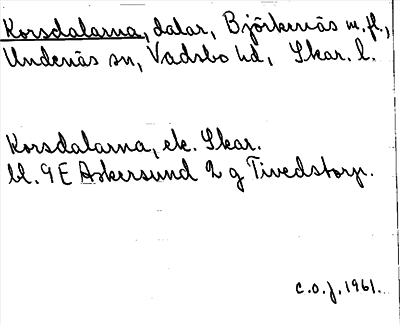 Korsdalarna, dalar, Björkenäs m.fl.,
Undenäs sn, Vadsbo hd, Skar. l.
Korsdalarna, ek. Skar.
bl. 9 E Askersund 2 g Tivedstorp.
C.O.J. 1961.